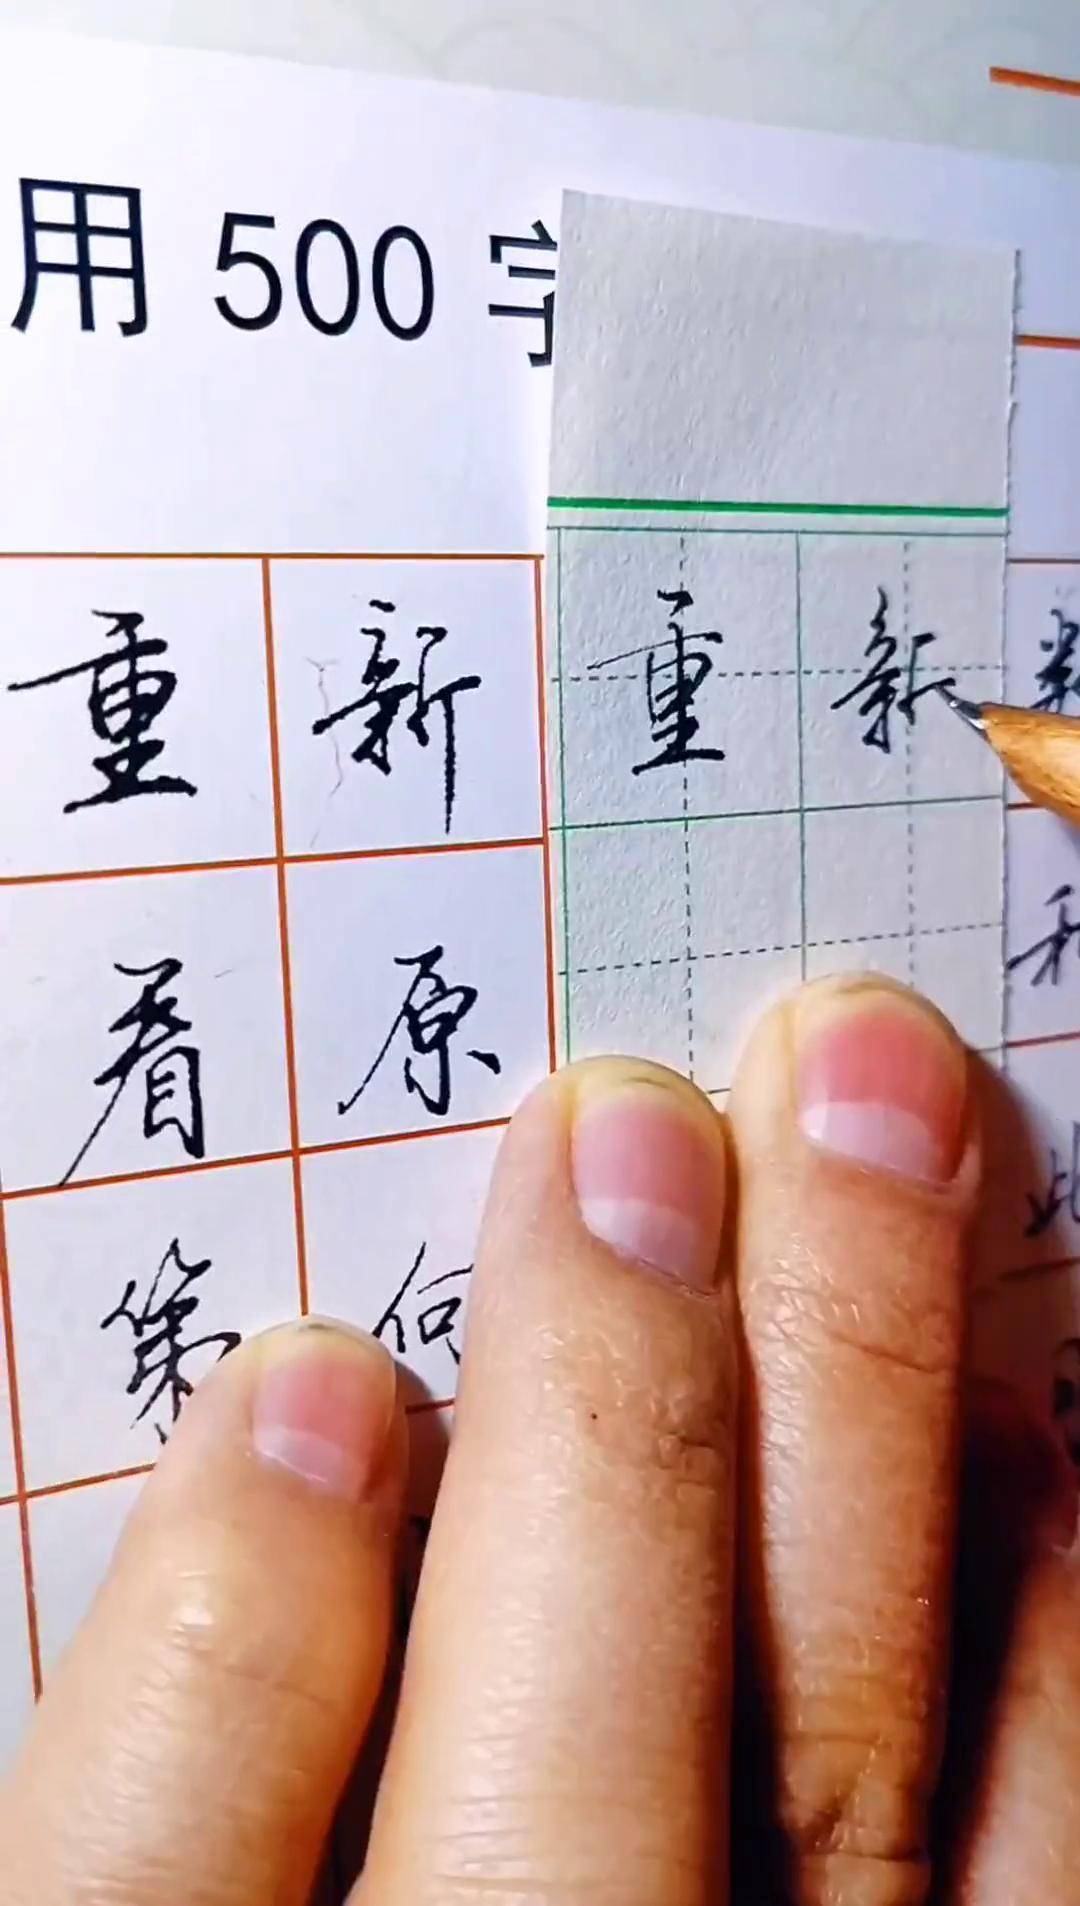 用 500 字
重 新 重 新
看 原 和
第 何 此